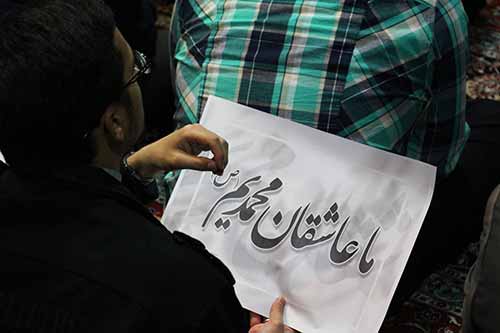 ما عاشقان محمدیم ص